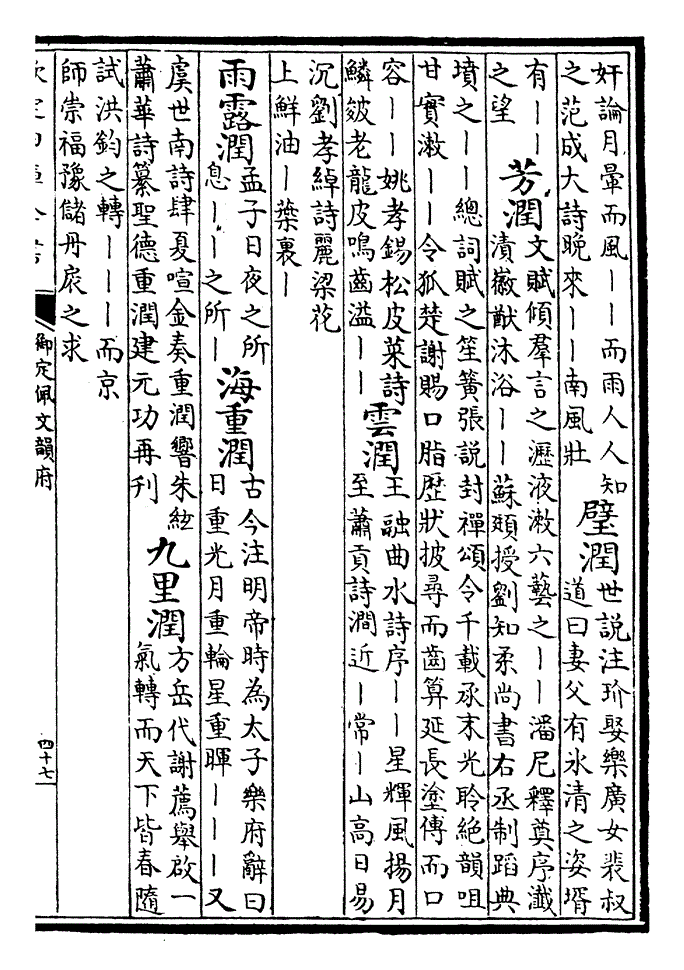 奸論月暈而風丨丨而雨人人知
之范成大詩晚來丨丨南風壯
璧潤
世説注玠娶樂廣女裴叔
道曰妻父有氷清之姿壻
有丨丨
之望
芳潤
文賦傾羣言之瀝液漱六藝之丨丨潘尼釋奠序瀸
漬徽猷沐浴丨丨蘇頲授劉知柔尚書右丞制蹈典
墳之丨丨總詞賦之笙簧張説封禪頌令千載承末光聆絶韻咀
甘實漱丨丨令狐楚謝賜口脂歴狀披尋而齒算延長塗傳而口
容丨丨姚孝錫松皮菜詩
鱗皴老龍皮鳴齒溢丨丨
雲潤
王融曲水詩序丨丨星輝風揚月
至蕭貢詩澗近丨常丨山高日易
沉劉孝綽詩麗梁花
上鮮油丨蘂裏丨
雨露潤
孟子日夜之所
息丨丨之所丨
海重潤
古今注明帝時為太子樂府辭曰
日重光月重輪星重暉丨丨丨又
虞世南詩肆夏喧金奏重潤響朱絃
蕭華詩纂聖德重潤建元功再刋
九里潤
方岳代謝薦舉啟一
氣轉而天下皆春隨
試洪鈞之轉丨丨丨而京
師崇福豫儲丹扆之求
欽定四庫全書
御定佩文韻府
四十七